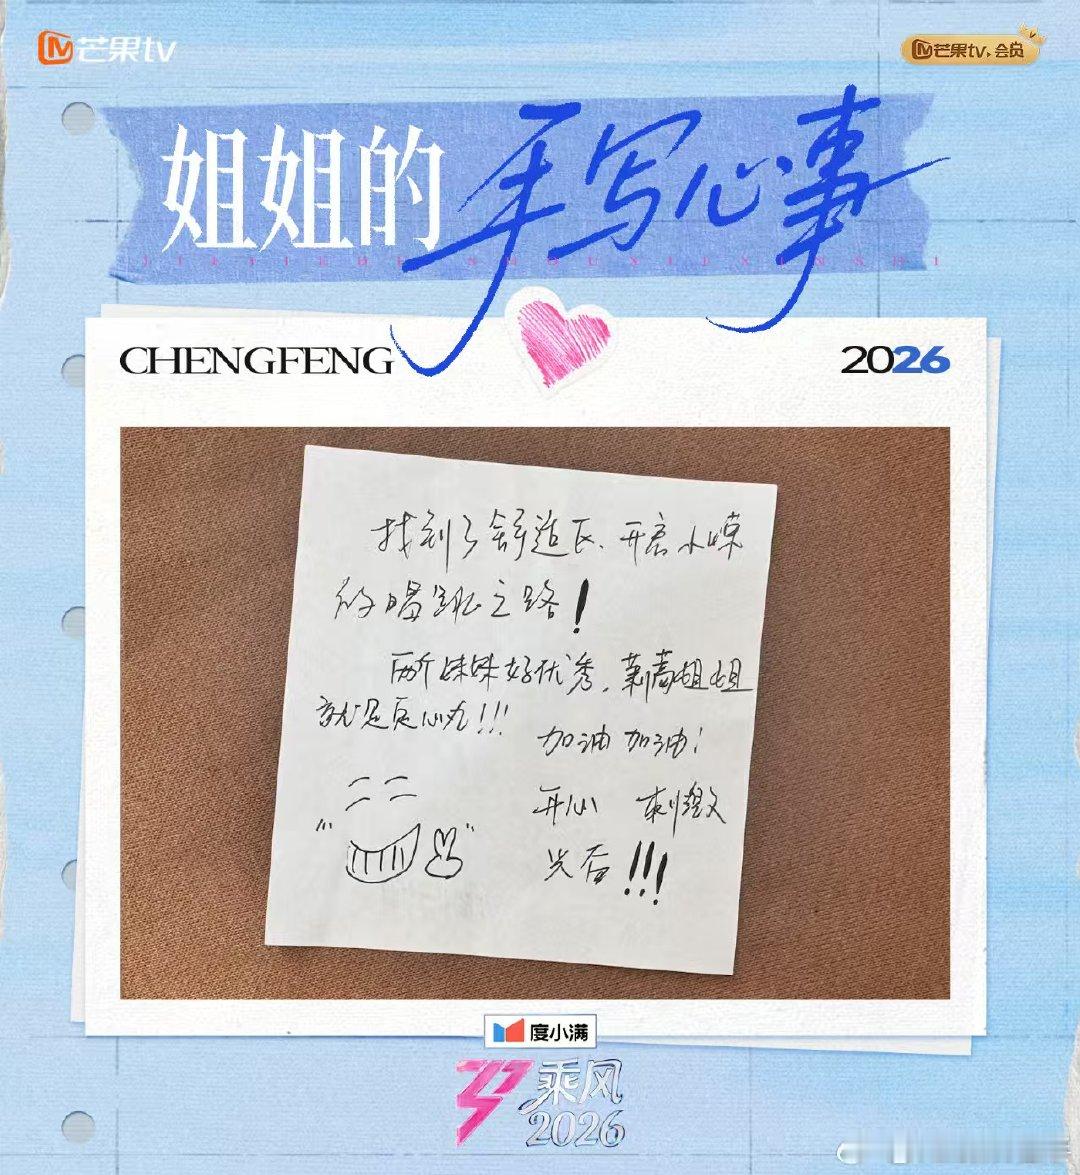 芒果tv
芒果tv会员
姐姐的手写心事
JIEJIEDE SHOUXIEXINSHI
CHENGFENG
2026
找到了舒适区、开启小嗓
的唱跳之路！
两个妹妹好优秀，萧蔷姐姐
就是定心丸!!!
加油加油！
开心 刺激
兴奋!!!
度小满
乘风
2026